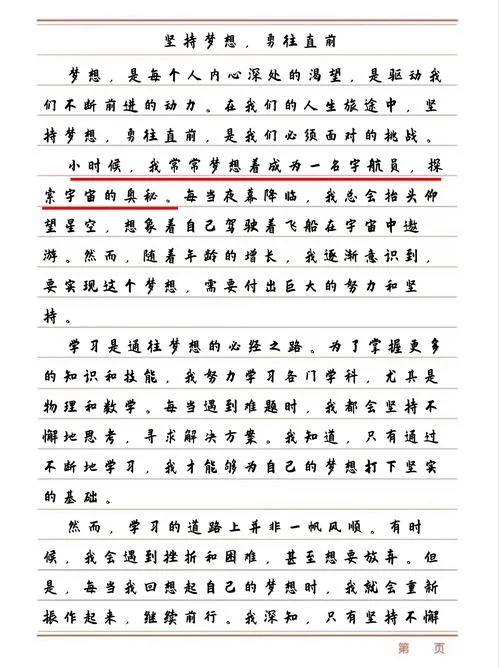 坚持梦想，勇往直前
梦想，是每个人内心深处的渴望，是驱动我
们不断前进的动力。在我们的人生旅途中，坚
持梦想，勇往直前，是我们必须面对的挑战。
小时候，我常常梦想着成为一名宇航员，探
索宇宙的奥秘。每当夜幕降临，我总会抬头仰
望星空，想象着自己驾驶着飞船在宇宙中遨
游。然而，随着年龄的增长，我逐渐意识到，
要实现这个梦想，需要付出巨大的努力和坚
持。
学习是通往梦想的必经之路。为了掌握更多
的知识和技能，我努力学习各门学科，尤其是
物理和数学。每当遇到难题时，我都会坚持不
懈地思考，寻求解决方案。我知道，只有通过
不断地学习，我才能够为自己的梦想打下坚实
的基础。
然而，学习的道路上并非一帆风顺。有时
候，我会遇到挫折和困难，甚至想要放弃。但
是，每当我回想起自己的梦想时，我就会重新
振作起来，继续前行。我深知，只有坚持不懈
第 页